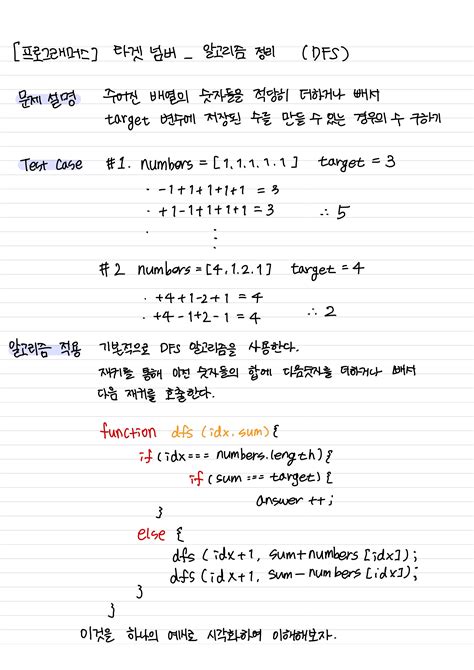 [프로그래머스] 타겟 넘버 _ 알고리즘 정리 (DFS)
문제 설명 주어진 배열의 숫자들을 적당히 더하거나 빼서
target 변수에 저장된 수를 만들 수 있는 경우의 수 구하기
Test Case #1. numbers = [1,1,1,1,1] target = 3
· -1+1+1+1+1 = 3
· +1-1+1+1+1 = 3 ∴ 5
·
⋮
#2 numbers = [4,1,2,1] target = 4
· +4+1-2+1 = 4
· +4-1+2-1 = 4 ∴ 2
알고리즘 적용 기본적으로 DFS 알고리즘을 사용한다.
재귀를 통해 이전 숫자들의 합에 다음숫자를 더하거나 빼서
다음 재귀를 호출한다.
function dfs (idx, sum) {
if (idx === numbers.length) {
if (sum === target) {
answer ++;
}
else {
dfs (idx+1, sum+numbers [idx]);
dfs (idx+1, sum-numbers [idx]);
}
}
이것을 하나의 예시로 시각화하여 이해해보자.